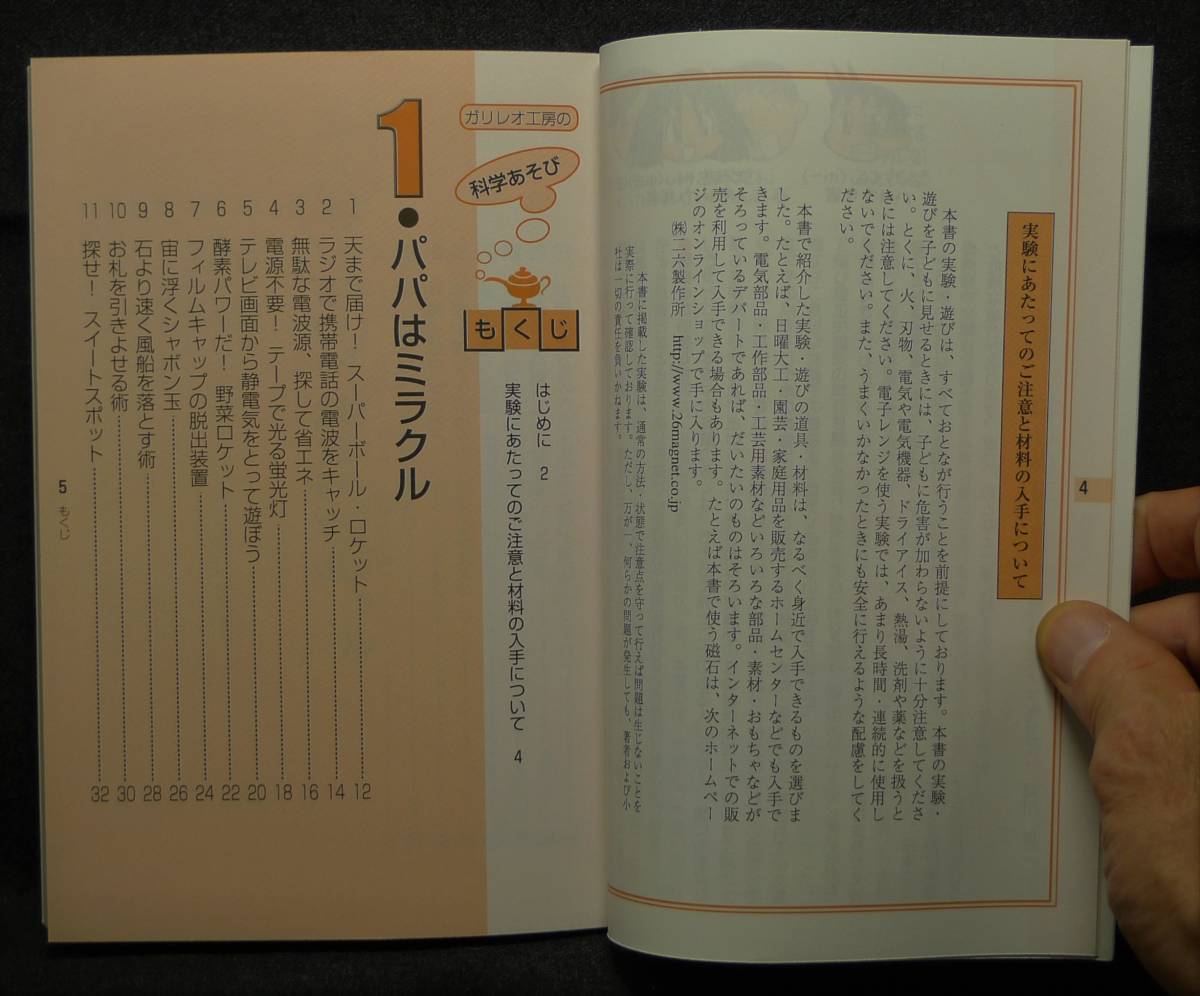 4
実験にあたってのご注意と材料の入手について
本書の実験・遊びは、すべておとなが行うことを前提にしております。本書の実験・
遊びを子どもに見せるときには、子どもに危害が加わらないように十分注意してくださ
い。とくに、火、刃物、電気や電気機器、ドライアイス、熱湯、洗剤や薬などを扱うと
きには注意してください。電子レンジを使う実験では、あまり長時間・連続的に使用し
ないでください。また、うまくいかなかったときにも安全に行えるような配慮をしてく
ださい。
本書で紹介した実験・遊びの道具・材料は、なるべく身近で入手できるものを選びま
した。たとえば、日曜大工・園芸・家庭用品を販売するホームセンターなどでも入手で
きます。電気部品・工作部品・工芸用素材などいろいろな部品・素材・おもちゃなどが
そろっているデパートであれば、だいたいのものはそろいます。インターネットでの販
売を利用して入手できる場合もあります。たとえば本書で使う磁石は、次のホームペー
ジのオンラインショップで手に入ります。
㈱二六製作所 http://www.26magnet.co.jp
本書に掲載した実験は、通常の方法・状態で注意点を守って行えば問題は生じないことを
実際に行って確認しております。ただし、万が一、何らかの問題が発生しても、著者および小
社は一切の責任を負いかねます。
ガリレオ工房の
科学あそび
もくじ
はじめに 2
実験にあたってのご注意と材料の入手について 4
1・パパはミラクル
1 天まで届け！スーパーボール・ロケット 12
2 ラジオで携帯電話の電波をキャッチ 14
3 無駄な電波源、探して省エネ 16
4 電源不要！テープで光る蛍光灯 18
5 テレビ画面から静電気をとって遊ぼう 20
6 酵素パワーだ！野菜ロケット 22
7 フィルムキャップの脱出装置 24
8 宙に浮くシャボン玉 26
9 石より速く風船を落とす術 28
10 お札を引きよせる術 30
11 探せ！スイートスポット 32
5 もくじ